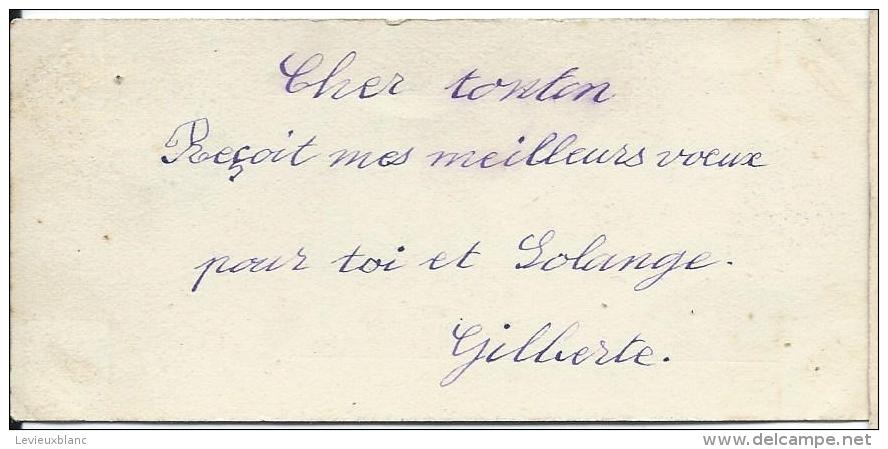 Cher tonton
Reçoit mes meilleurs voeux
pour toi et Solange.
Gilberte.
Levieuxblanc
www.delcampe.net